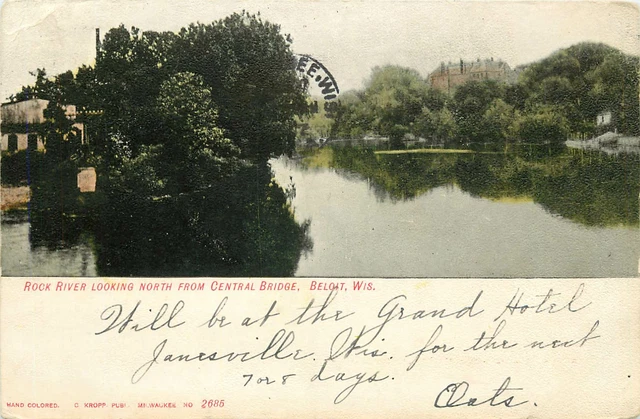 EE, WIS
ROCK RIVER LOOKING NORTH FROM CENTRAL BRIDGE, BELOIT, WIS.
Will be at the Grand Hotel
Janesville. Wis. for the next
7 or 8 days.
Oats.
HAND COLORED. O KROPP PUBL. MILWAUKEE NO 2685